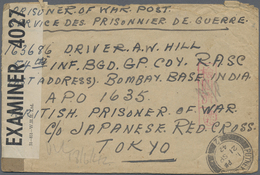 PRISONER OF WAR POST.
SERVICE DES PRISONNIER DE GUERRE.
165686 DRIVER. A.W. HILL
INF. BGD. GP. COY. RASC
ADDRESS). BOMBAY. BASE. INDIA
APO 1635.
BRITISH. PRISONER OF WAR
C/O JAPANESE. RED. CROSS.
TOKYO
EXAMINER 4022